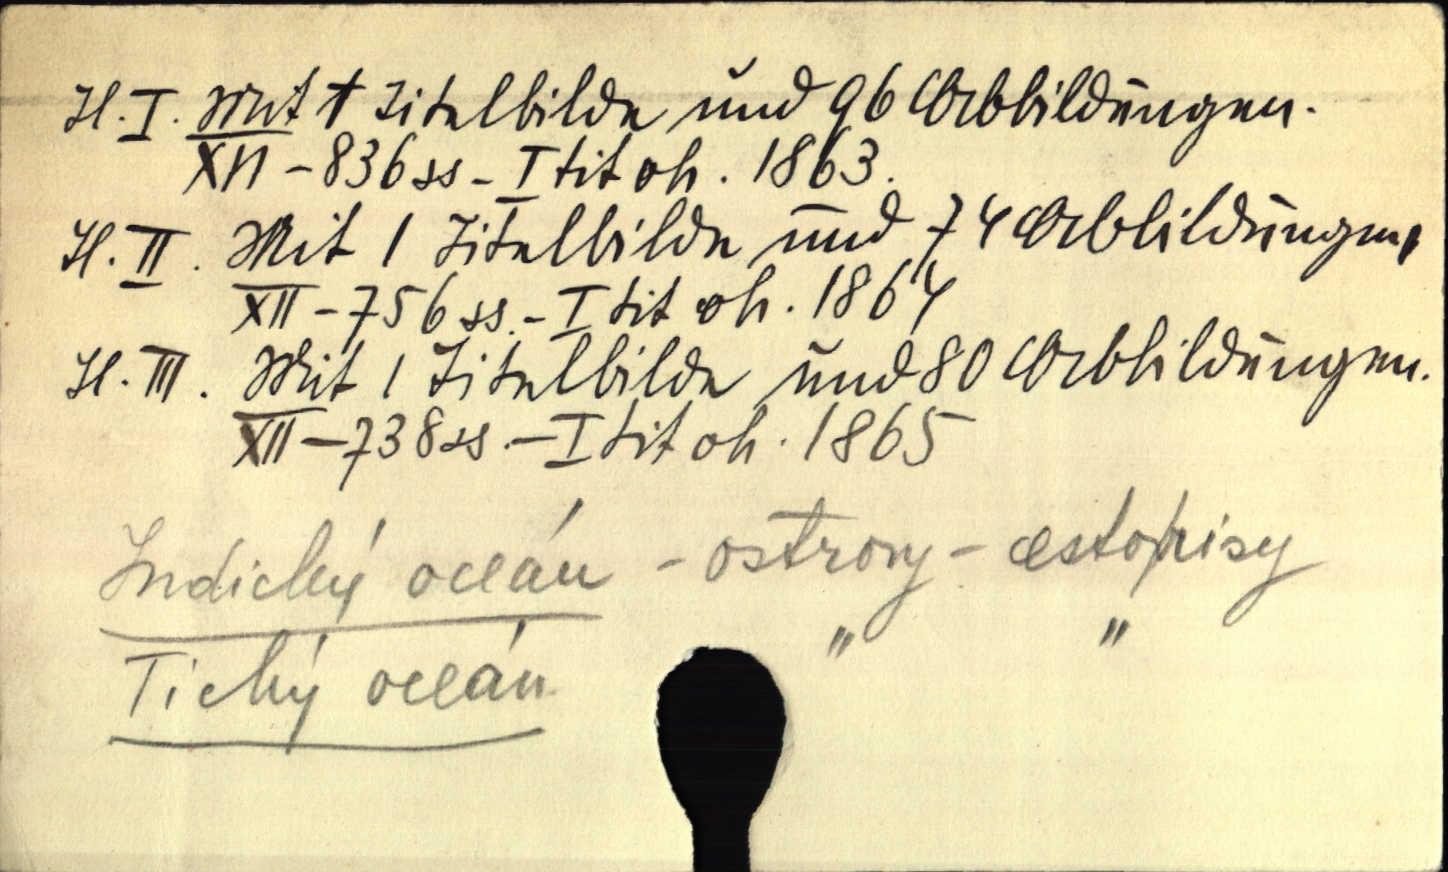 H. I. Mit 1 Titelbilde und 96 Abbildungen.
XII - 836 ss - I tit ob. 1863.
H. II. Mit 1 Titelbilde und 74 Abbildungen,
XII - 756 ss. - I tit ob. 1864
H. III. Mit 1 Titelbilde und 80 Abbildungen.
XII - 738 ss. - I tit ob. 1865
Indický oceán - ostrovy - cestopisy
Tichý oceán " "